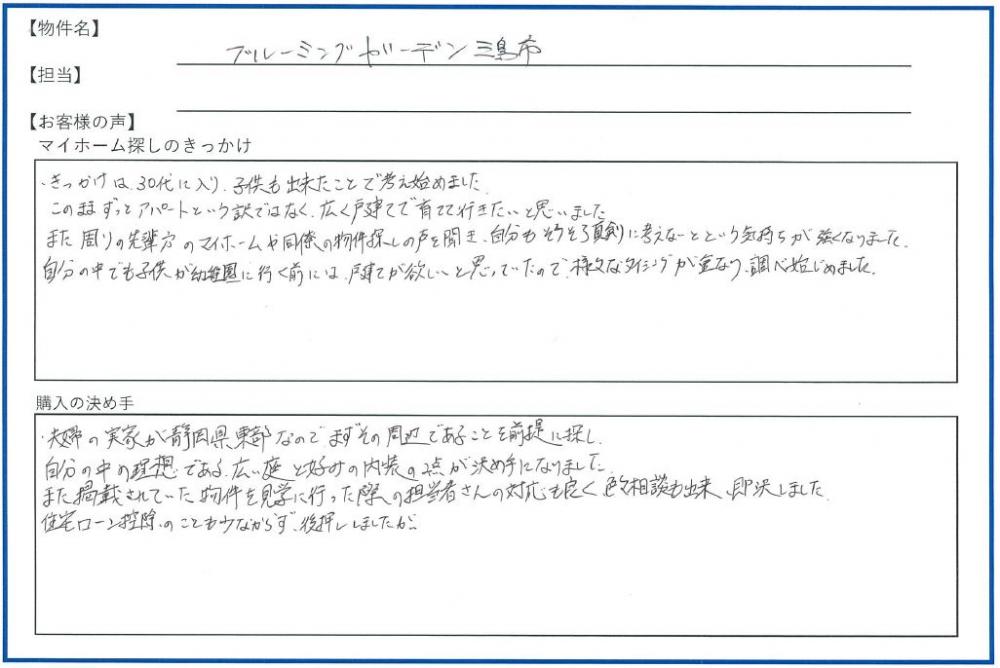 【物件名】
ブルーミングガーデン三島市
【担当】
【お客様の声】
マイホーム探しのきっかけ
・きっかけは、30代に入り、子供も出来たことで考え始めました。
このままずっとアパートという訳ではなく、広く戸建てで育てて行きたいと思いました
また周りの先輩方のマイホームや同僚の物件探しの声を聞き、自分もそろそろ真剣に考えないとという気持ちが強くなりました。
自分の中でも子供が幼稚園に行く前には、戸建てが欲しいと思っていたので、様々なタイミングが重なり、調べ始じめました。
購入の決め手
・夫婦の実家が静岡県東部なのでまずその周辺であることを前提に探し、
自分の中の理想である、広い庭と好みの内装の2点が決め手になりました。
また掲載されていた物件を見学に行った際の担当者さんの対応も良く色々相談も出来、即決しました。
住宅ローン控除のことも少ながらず、後押ししましたが…